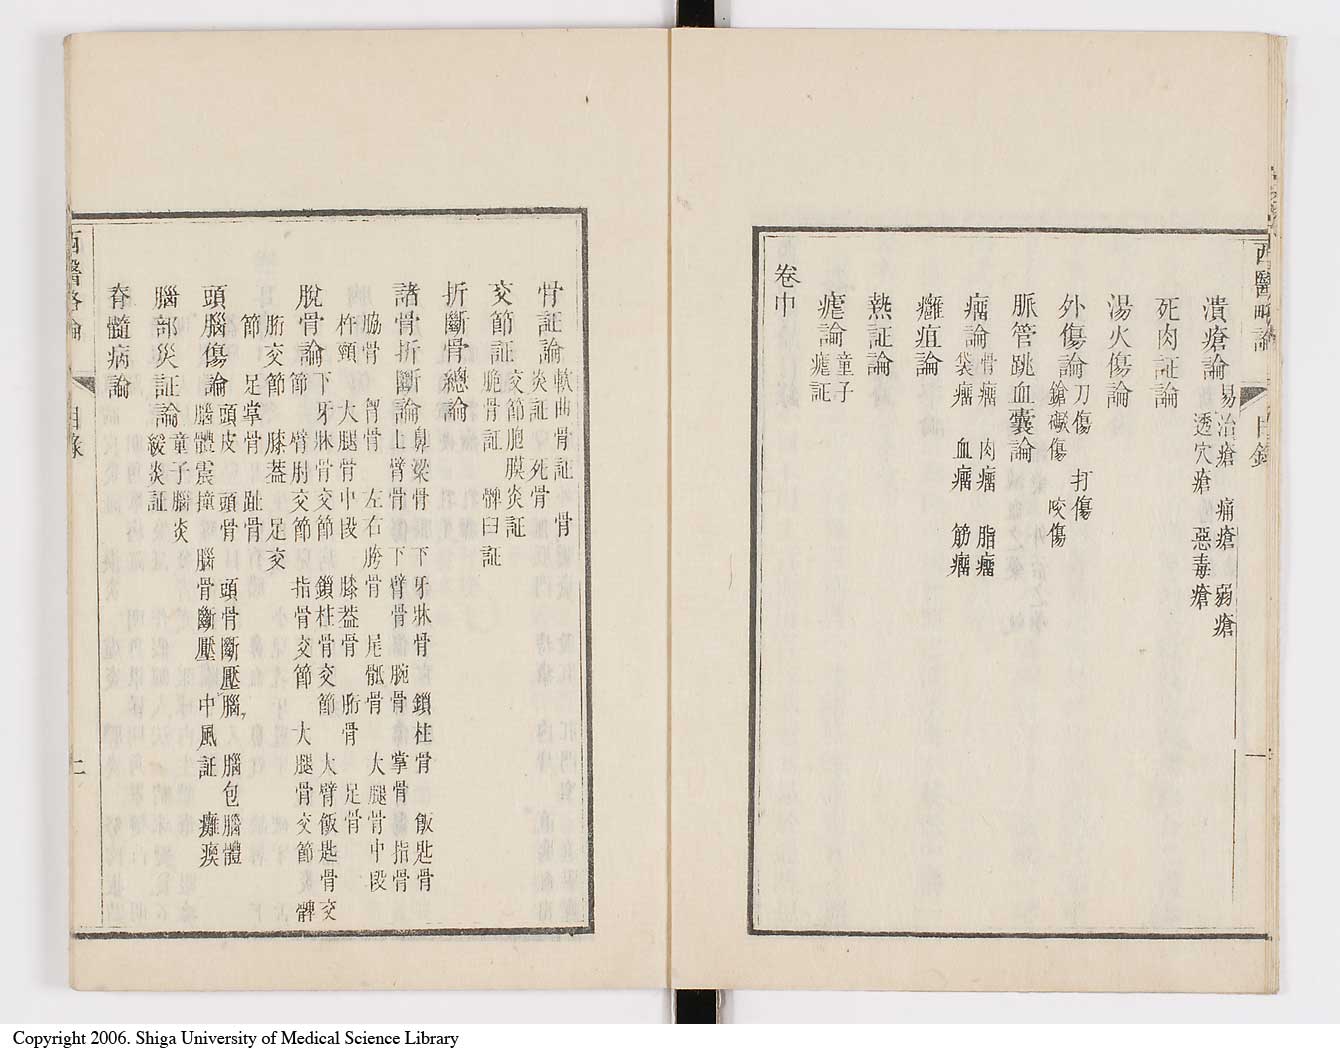 西醫略論
目錄
一
潰瘍論 易治瘡 痛瘡 弱瘡
透穴瘡 惡毒瘡
死肉証論
湯火傷論
外傷論 刀傷 打傷
鎗礮傷 咬傷
脈管跳血囊論
瘤論 骨瘤 肉瘤 脂瘤
袋瘤 血瘤 筋瘤
癰疽論
熱証論
瘧論 童子
瘧証
卷中
骨証論 軟曲骨証 骨
炎証 死骨
交節証 交節胞膜炎証
脆骨証 髀臼証
折斷骨總論
諸骨折斷論 鼻梁骨 下牙牀骨 鎖柱骨 飯匙骨
上臂骨 下臂骨 腕骨 掌骨 指骨
脇骨 胷骨 左右胯骨 尾骶骨 大腿骨中段
杵頸 大腿骨中段 膝蓋骨 胻骨 足骨
脫骨論 下牙牀骨交節 鎖柱骨交節 大臂飯匙骨交
節 臂肘交節 指骨交節 大腿骨交節 髀
胻交節 膝蓋 足交
節 足掌骨 趾骨
頭腦傷論 頭皮 頭骨 頭骨斷壓腦 腦包腦體
腦體震撞 腦骨斷壓 中風証 癱瘓
腦部炎証論 童子腦炎
緩炎証
脊髓病論
西醫略論
目錄
二
Copyright 2006. Shiga University of Medical Science Library